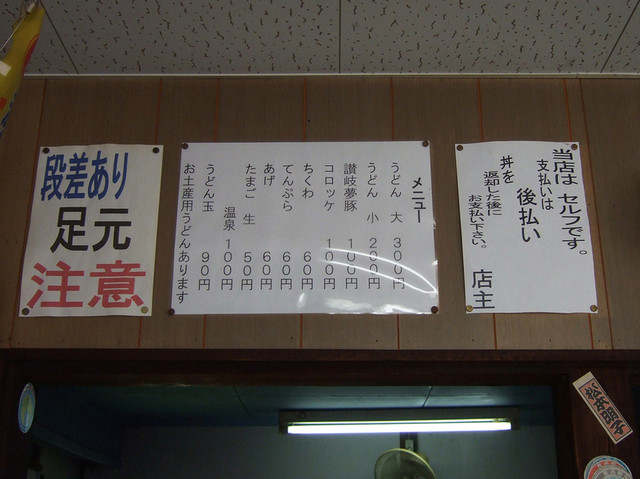 段差あり
足元
注意
メニュー
うどん 大 300円
うどん 小 200円
讃岐夢豚 100円
コロッケ 100円
ちくわ 60円
てんぷら 60円
あげ 60円
たまご 生 50円
温泉 100円
うどん玉 90円
お土産用うどんあります
当店は セルフです。
支払いは
後払い
丼を
返却した後に
お支払い下さい。
店主
松本明子